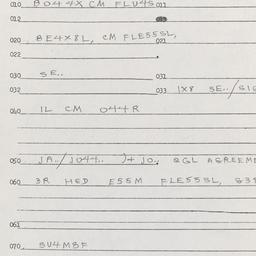 010 BO44X CM FLU4S 011
012
020 BE4X8L, CM FLE55SL,
021
022
030 SE.. 031
032 033 1X8 SE../SIG
040 IL CM O44R
050 JA./JO44.. J+ JO., SGL AGREEME
060 3R HED E55M FLE55SL, S3
061
070 8U4M8F